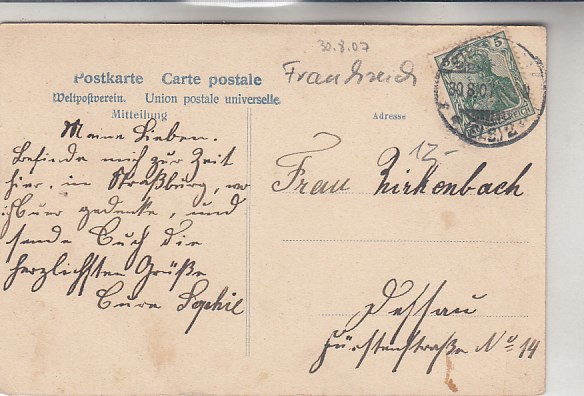 30.8.07
Frankreich
Postkarte Carte postale
Weltpostverein. Union postale universelle
Mitteilung
Adresse
Meine Lieben.
Befinde mich zur Zeit
hier, in Straßburg, wo
ich Euer gedenke, und
sende Euch die
herzlichsten Grüße
Eure Sophie
12,-
Frau Zirkenbach
Dessau
Fürstenstraße No 14
5
30.8.07